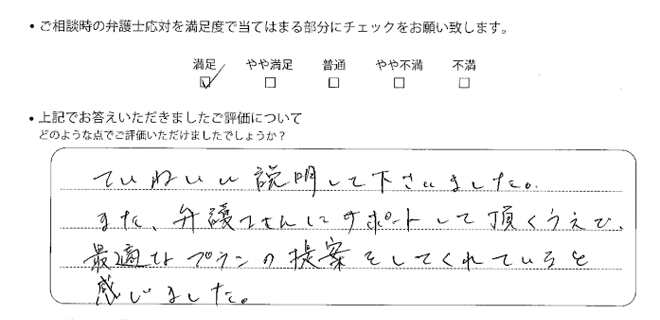 ・ご相談時の弁護士応対を満足度で当てはまる部分にチェックをお願い致します。
満足 やや満足 普通 やや不満 不満
・上記でお答えいただきましたご評価について
どのような点でご評価いただけましたでしょうか?
ていねいい説明して下さいました。
また、弁護士さんにサポートして頂くうえで、
最適なプランの提案をしてくれていると
感じました。